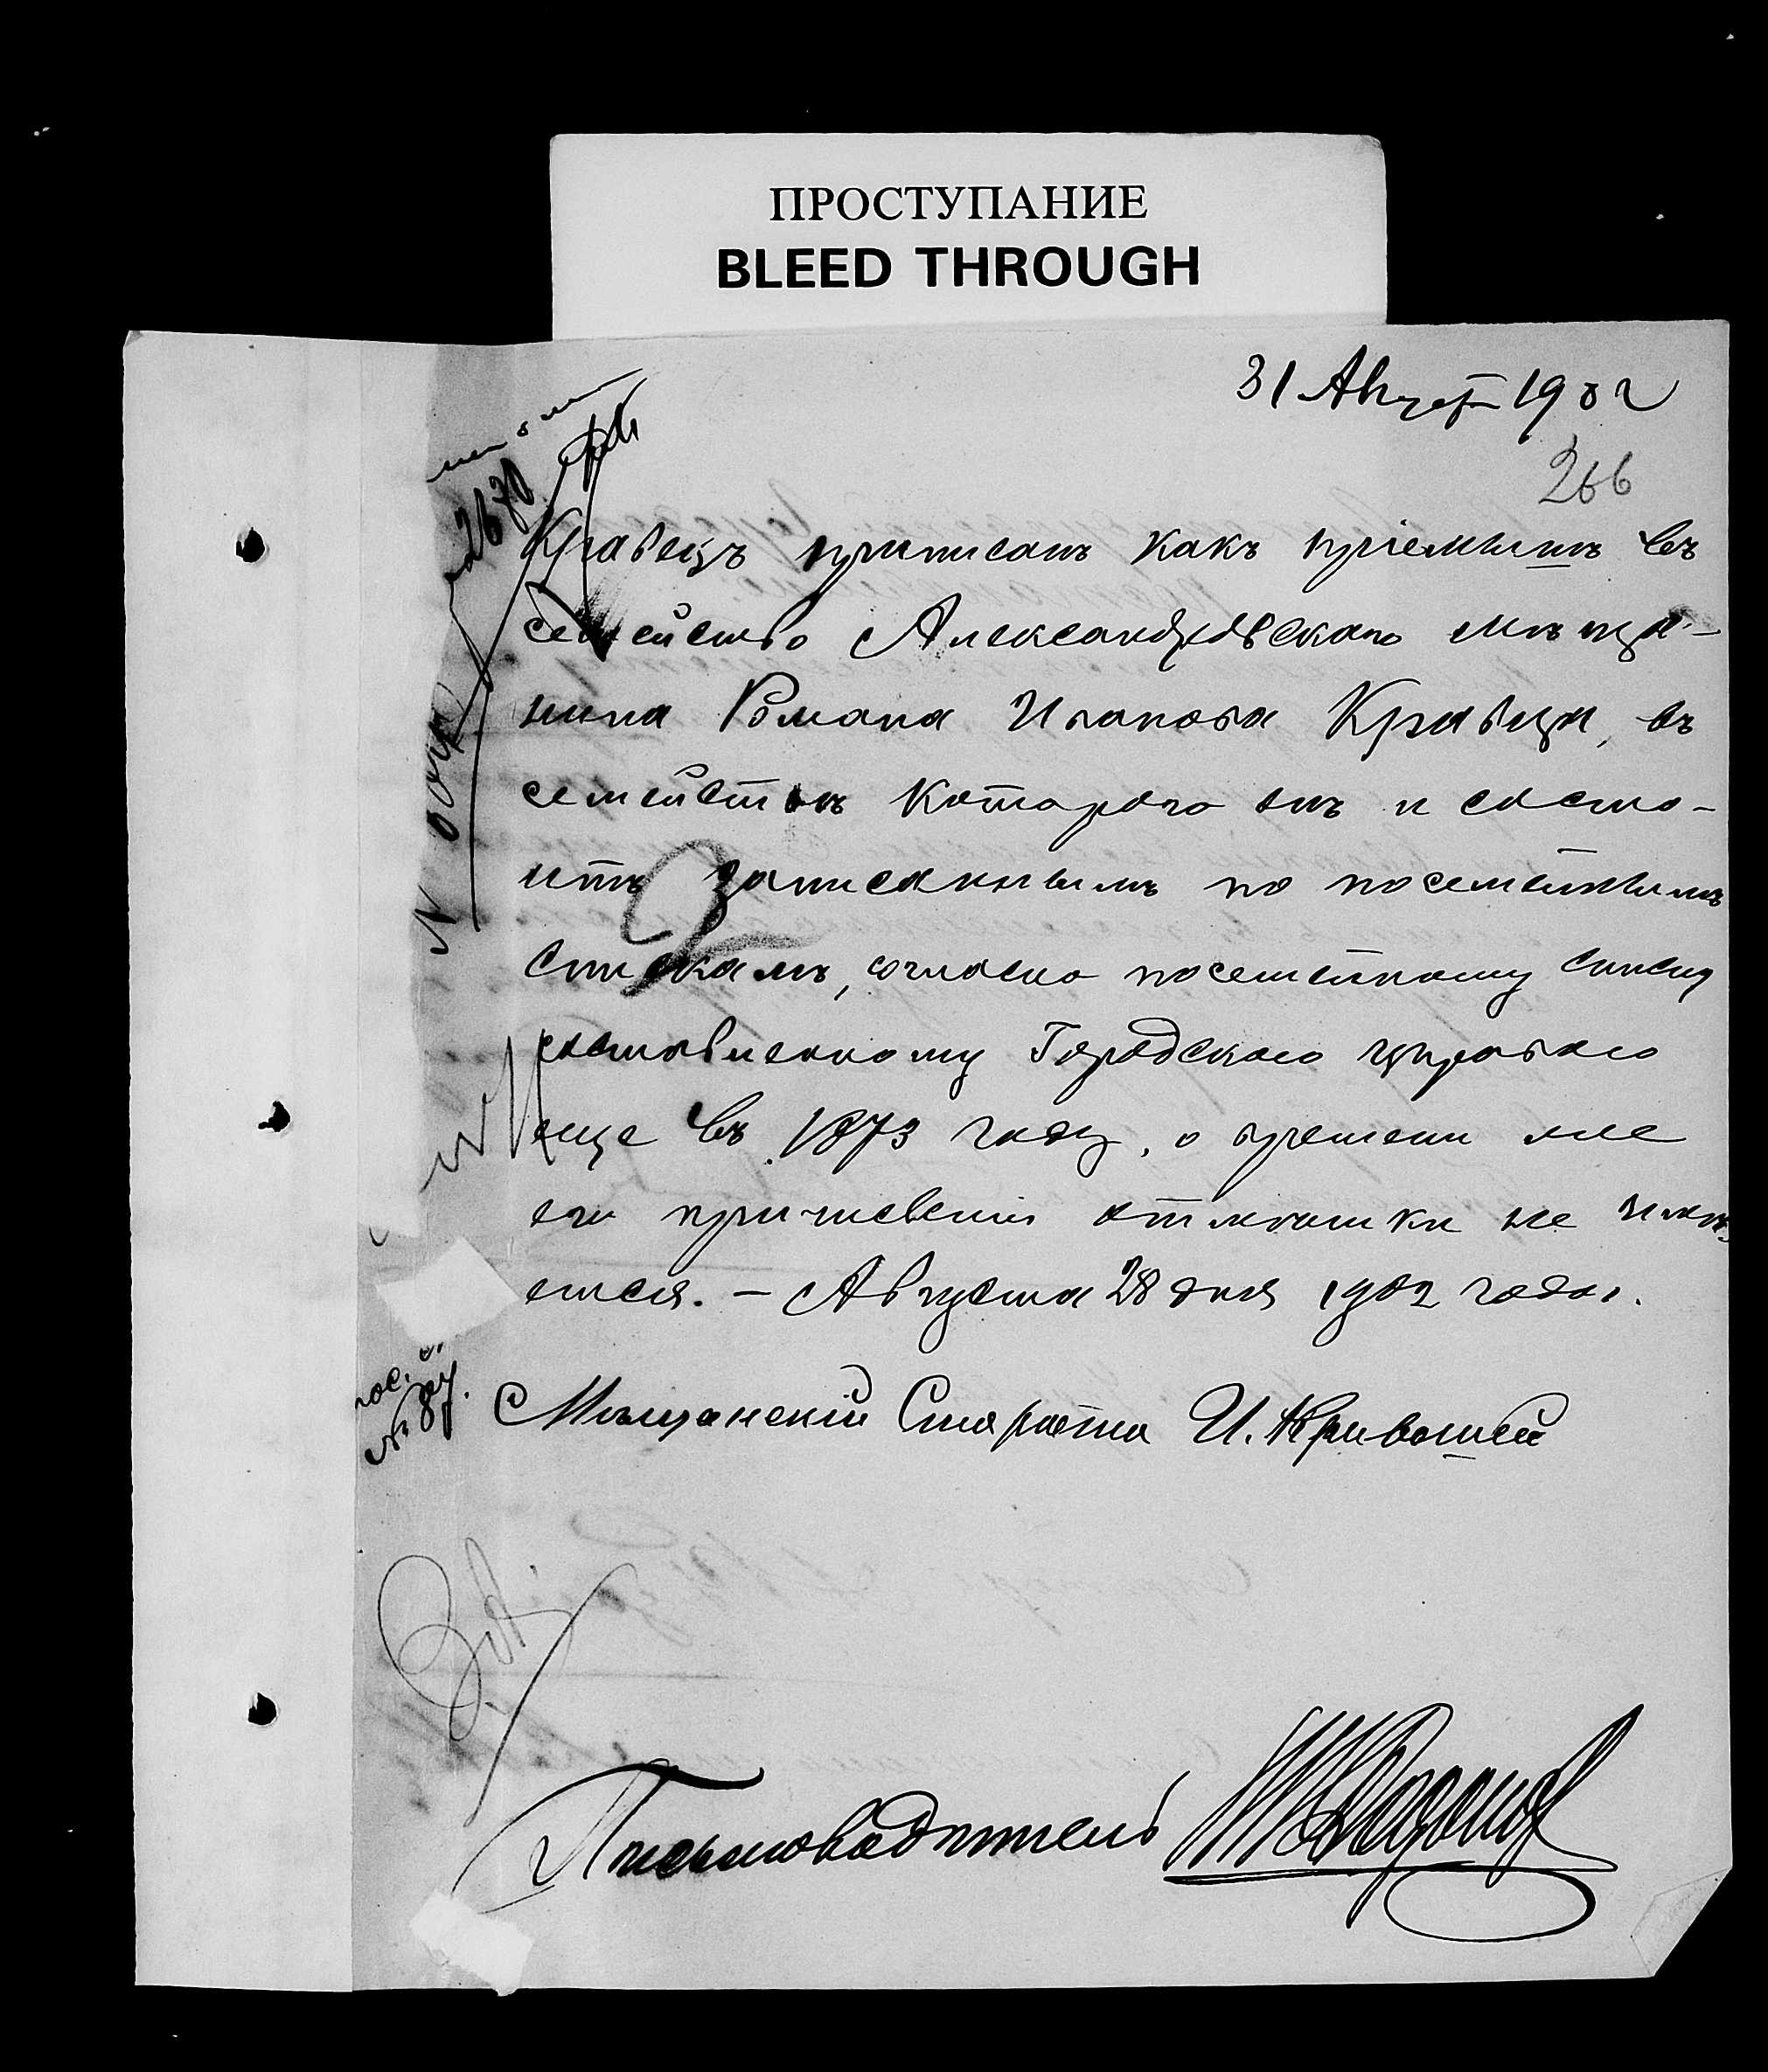 ПРОСТУПАНИЕ
BLEED THROUGH
31 Август 1902
266
№2670
Кравецъ приписанъ какъ пріемышъ въ
семейство Александровскаго мѣща-
нина Романа Иванова Кравца, въ
семействѣ котораго онъ и состо-
итъ записаннымъ по посемейнымъ
спискамъ, согласно посемейному списку
составленному Городскою Управою
еще въ 1873 году, о времени же
его причисленія отмѣтки не имѣ-
ется. — Августа 28 дня 1902 года.
Мѣщанскій Староста И. Кривошей
Письмоводитель